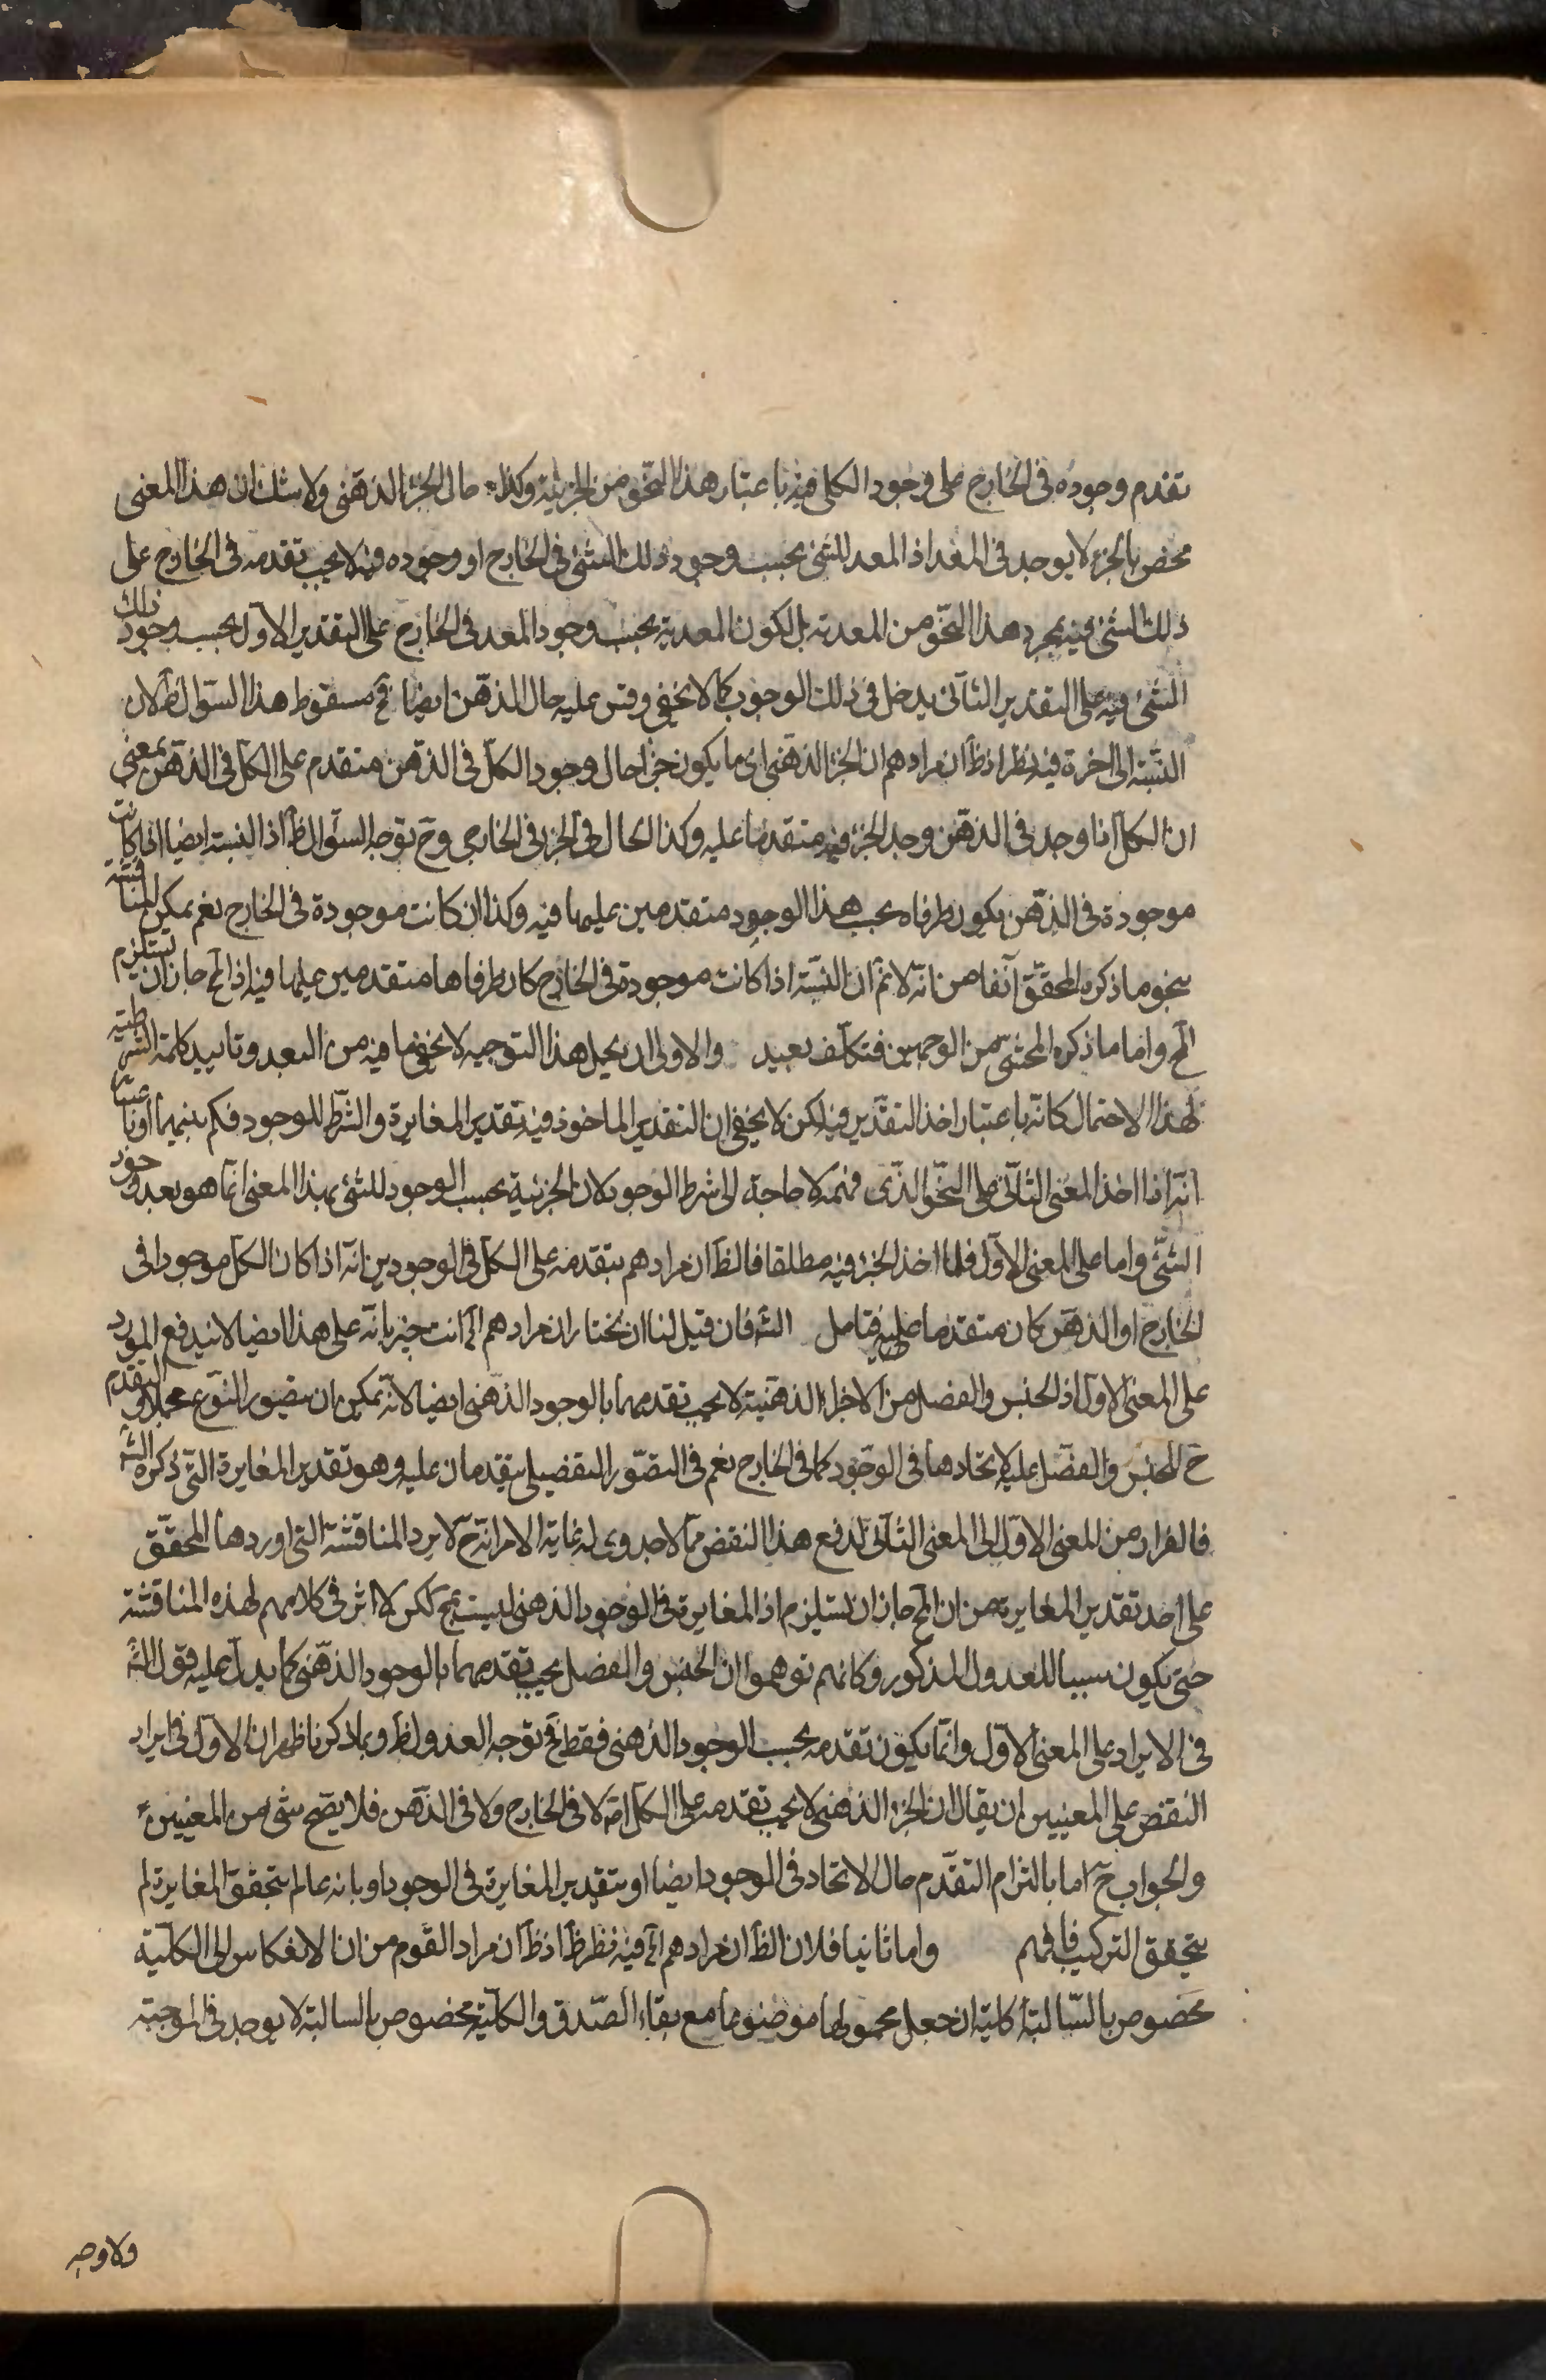 تقدم وجوده فى الخارج على وجود الكلى فيه باعتبار هذا النحو من الجزئية وكذا حال الجزء الذهنى ولا شك ان هذا المعنى
مختص بالجزء لا يوجد فى المعد اذ المعد للشئ بحسب وجود ذلك الشئ فى الخارج او وجوده فيه لا يجب تقدمه فى الخارج على
ذلك الشئ فيه بمجرد هذا النحو من المعدية بل لكون المعدية بحسب وجود المعد فى الخارج على التقدير الاول بحسب وجود ذلك
الشئ فيه على التقدير الثانى يدخل فى ذلك الوجوب كما لا يخفى وقس عليه حال الذهن ايضا فح سقوط هذا السؤال ظ لان
النسبة الى اخره فيه نظر اذ ظ ان مرادهم ان الجزء الذهنى اى ما يكون جزءا حال وجود الكل فى الذهن متقدم على الكل فى الذهن بمعنى
ان الكل اذا وجد فى الذهن وجد الجزء فيه متقدما عليه وكذا الحال فى الجزء فى الخارجى وح توجه السؤال ظ اذ النسبة ايضا اذا كانت
موجودة فى الذهن يكون طرفاه بحسب هذا الوجود متقدمين عليها فيه وكذا ان كانت موجودة فى الخارج نعم يمكن المناقشة
بنحو ما ذكره المحقق آنفا من انه لا نم ان النسبة اذا كانت موجودة فى الخارج كان طرفاها متقدمين عليها فيه اذ المح جاز ان يستلزم
المح واما ما ذكره المحشى من الوجهين فتكلف بعيد والاولى ان يحمل هذا التوجيه لا يخفى ما فيه من البعد وتاييد كلمة الشرطية
لهذا الاحتمال كانه باعتبار اخذ التقدير فيه لكن لا يخفى ان التقدير الماخوذ فيه تقدير المغايرة والشرط للوجود فكم بينهما او باعتبار
انه اذا اخذ المعنى الثانى على النحو الذى فهمه لا حاجة الى شرط الوجود لان الجزئية بحسب الوجود للشئ بهذا المعنى انما هو بعد وجود
الشئ واما على المعنى الاول فلما اخذ الجزء فيه مطلقا فالظ ان مرادهم بتقدمه على الكل فى الوجودين انه اذا كان الكل موجودا فى
الخارج او الذهن كان متقدما عليه فتامل الشه فان قيل لنا ان نختار ان مرادهم الخ انت خبير بانه على هذا ايضا لا يندفع المورد
على المعنى الاول اذ الجنس والفصل من الاجزاء الذهنية لا يجب تقدمهما بالوجود الذهنى ايضا لانه يمكن ان يتصور النوع مجملا والتقدم
ح للجنس والفصل عليه لاتحادهما فى الوجود كما فى الخارج نعم فى التصور التفصيلى يتقدمان عليه وهو تقدير المغايرة التى ذكره الشه
فالفرار من المعنى الاول الى المعنى الثانى لدفع هذا النقض مما لا جدوى له غاية الامر انه ح لا يرد المناقشة التى اوردها المحقق
على احد تقدير المغايرة من ان المح جاز ان تستلزم اذ المغايرة فى الوجود الذهنى ليست بمح لكن لا اثر فى كلامهم لهذه المناقشة
حتى يكون سببا للعدول المذكور وكانهم توهموا ان الجنس والفصل يجب تقدمهما بالوجود الذهنى كما يدل عليه قول الشه
فى الايراد على المعنى الاول وانما يكون تقدمه بحسب الوجود الذهنى فقط فح توجه العدول ظ وبما ذكرنا ظهر ان الاول فى ايراد
النقض على المعنيين ان يقال ان الجزء الذهنى لا يجب تقدمه على الكل اصلا لا فى الخارج ولا فى الذهن فلا يصح شئ من المعنيين
والجواب ح اما بالتزام التقدم حال الاتحاد فى الوجود ايضا او بتقدير المغايرة فى الوجود او بانه عالم يتحقق المغايرة لم
يتحقق التركيب فافهم واما ثانيا فلان الظ ان مرادهم الخ فيه نظر ظ اذ ظ ان مراد القوم من ان الانعكاس الى الكلية
مخصوص بالسالبة الكلية ان جعل محمولها موضوعا مع بقاء الصدق والكلية مخصوص بالسالبة لا يوجد فى الموجبة
ولا وجه